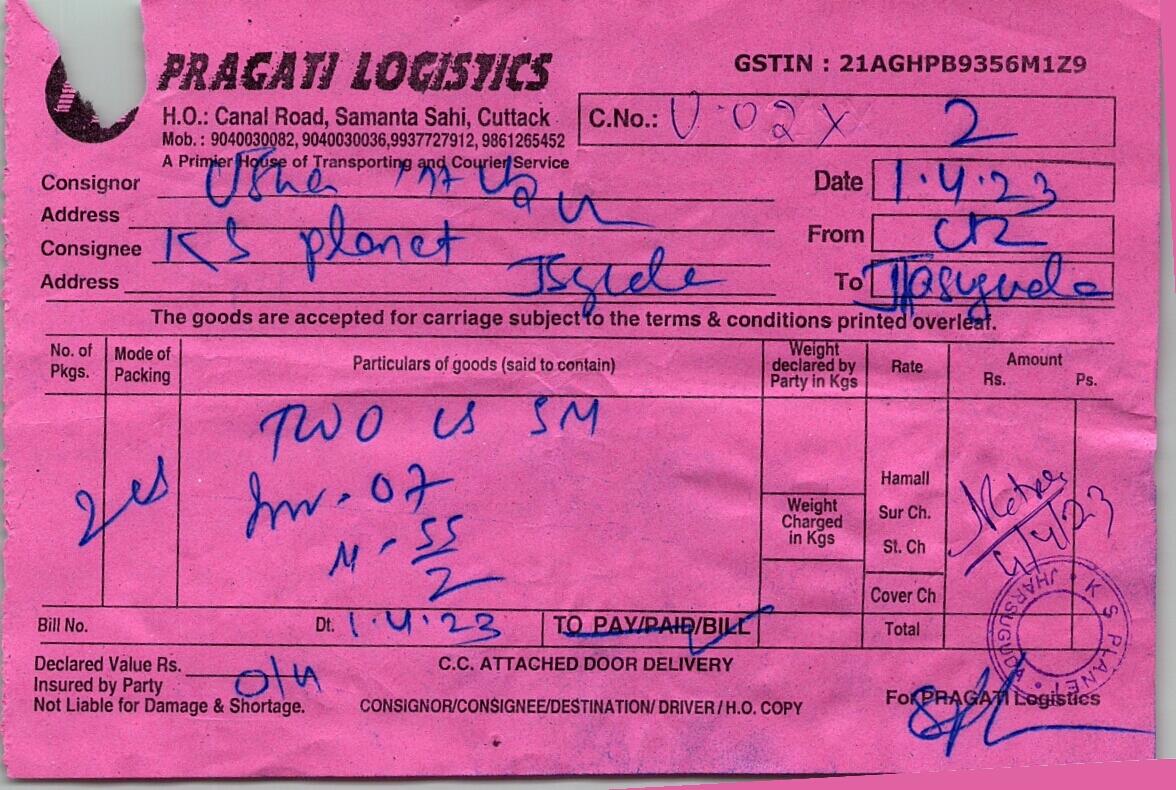 PRAGATI LOGISTICS
GSTIN : 21AGHPB9356M1Z9
H.O.: Canal Road, Samanta Sahi, Cuttack
C.No.: U-02 X 2
Mob. : 9040030082, 9040030036,9937727912, 9861265452
A Primier House of Transporting and Courier Service
Consignor Usha
Date 1.4.23
Address
From
Consignee KS planet
Address
To
The goods are accepted for carriage subject to the terms & conditions printed overleaf.
No. of Pkgs.
Mode of Packing
Particulars of goods (said to contain)
Weight declared by Party in Kgs
Rate
Amount
Rs. Ps.
TWO CS SM
2 CS
Inv - 07
M - 55/2
Weight Charged in Kgs
Hamall
Sur Ch.
St. Ch
Cover Ch
4/4/23
Bill No.
Dt. 1.4.23
TO PAY/PAID/BILL
Total
K S PLANET
JHARSUGUDA
Declared Value Rs.
C.C. ATTACHED DOOR DELIVERY
Insured by Party
Not Liable for Damage & Shortage.
CONSIGNOR/CONSIGNEE/DESTINATION/ DRIVER / H.O. COPY
For PRAGATI Logistics